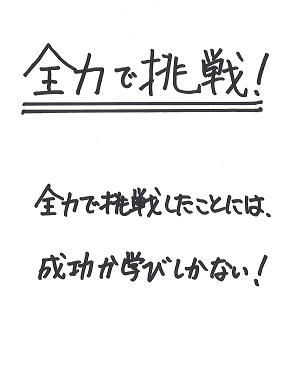 全力で挑戦！
全力で挑戦したことには、
成功か学びしかない！